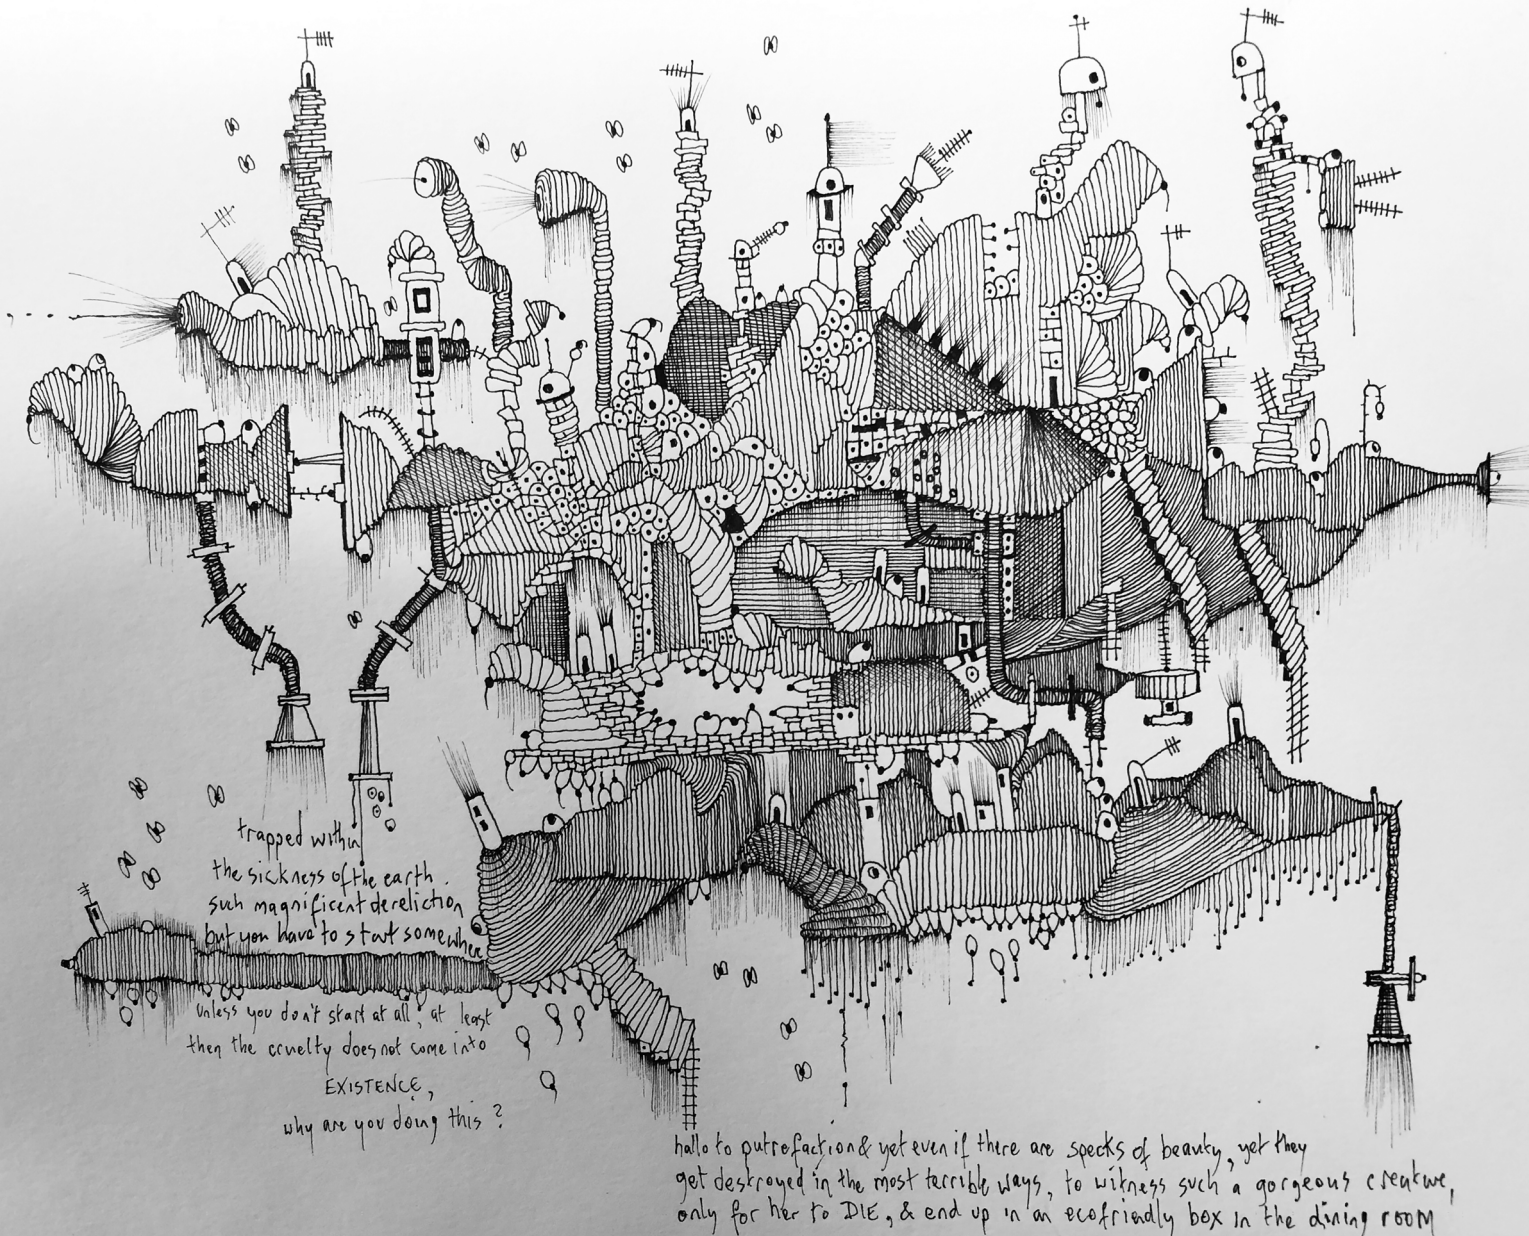 trapped within
the sickness of the earth
such magnificent dereliction
but you have to start somewhere
unless you don't start at all, at least
then the cruelty does not come into
EXISTENCE,
why are you doing this?
hallo to putrefaction & yet even if there are specks of beauty, yet they
get destroyed in the most terrible ways, to witness such a gorgeous creature,
only for her to DIE, & end up in an ecofriendly box in the dining room